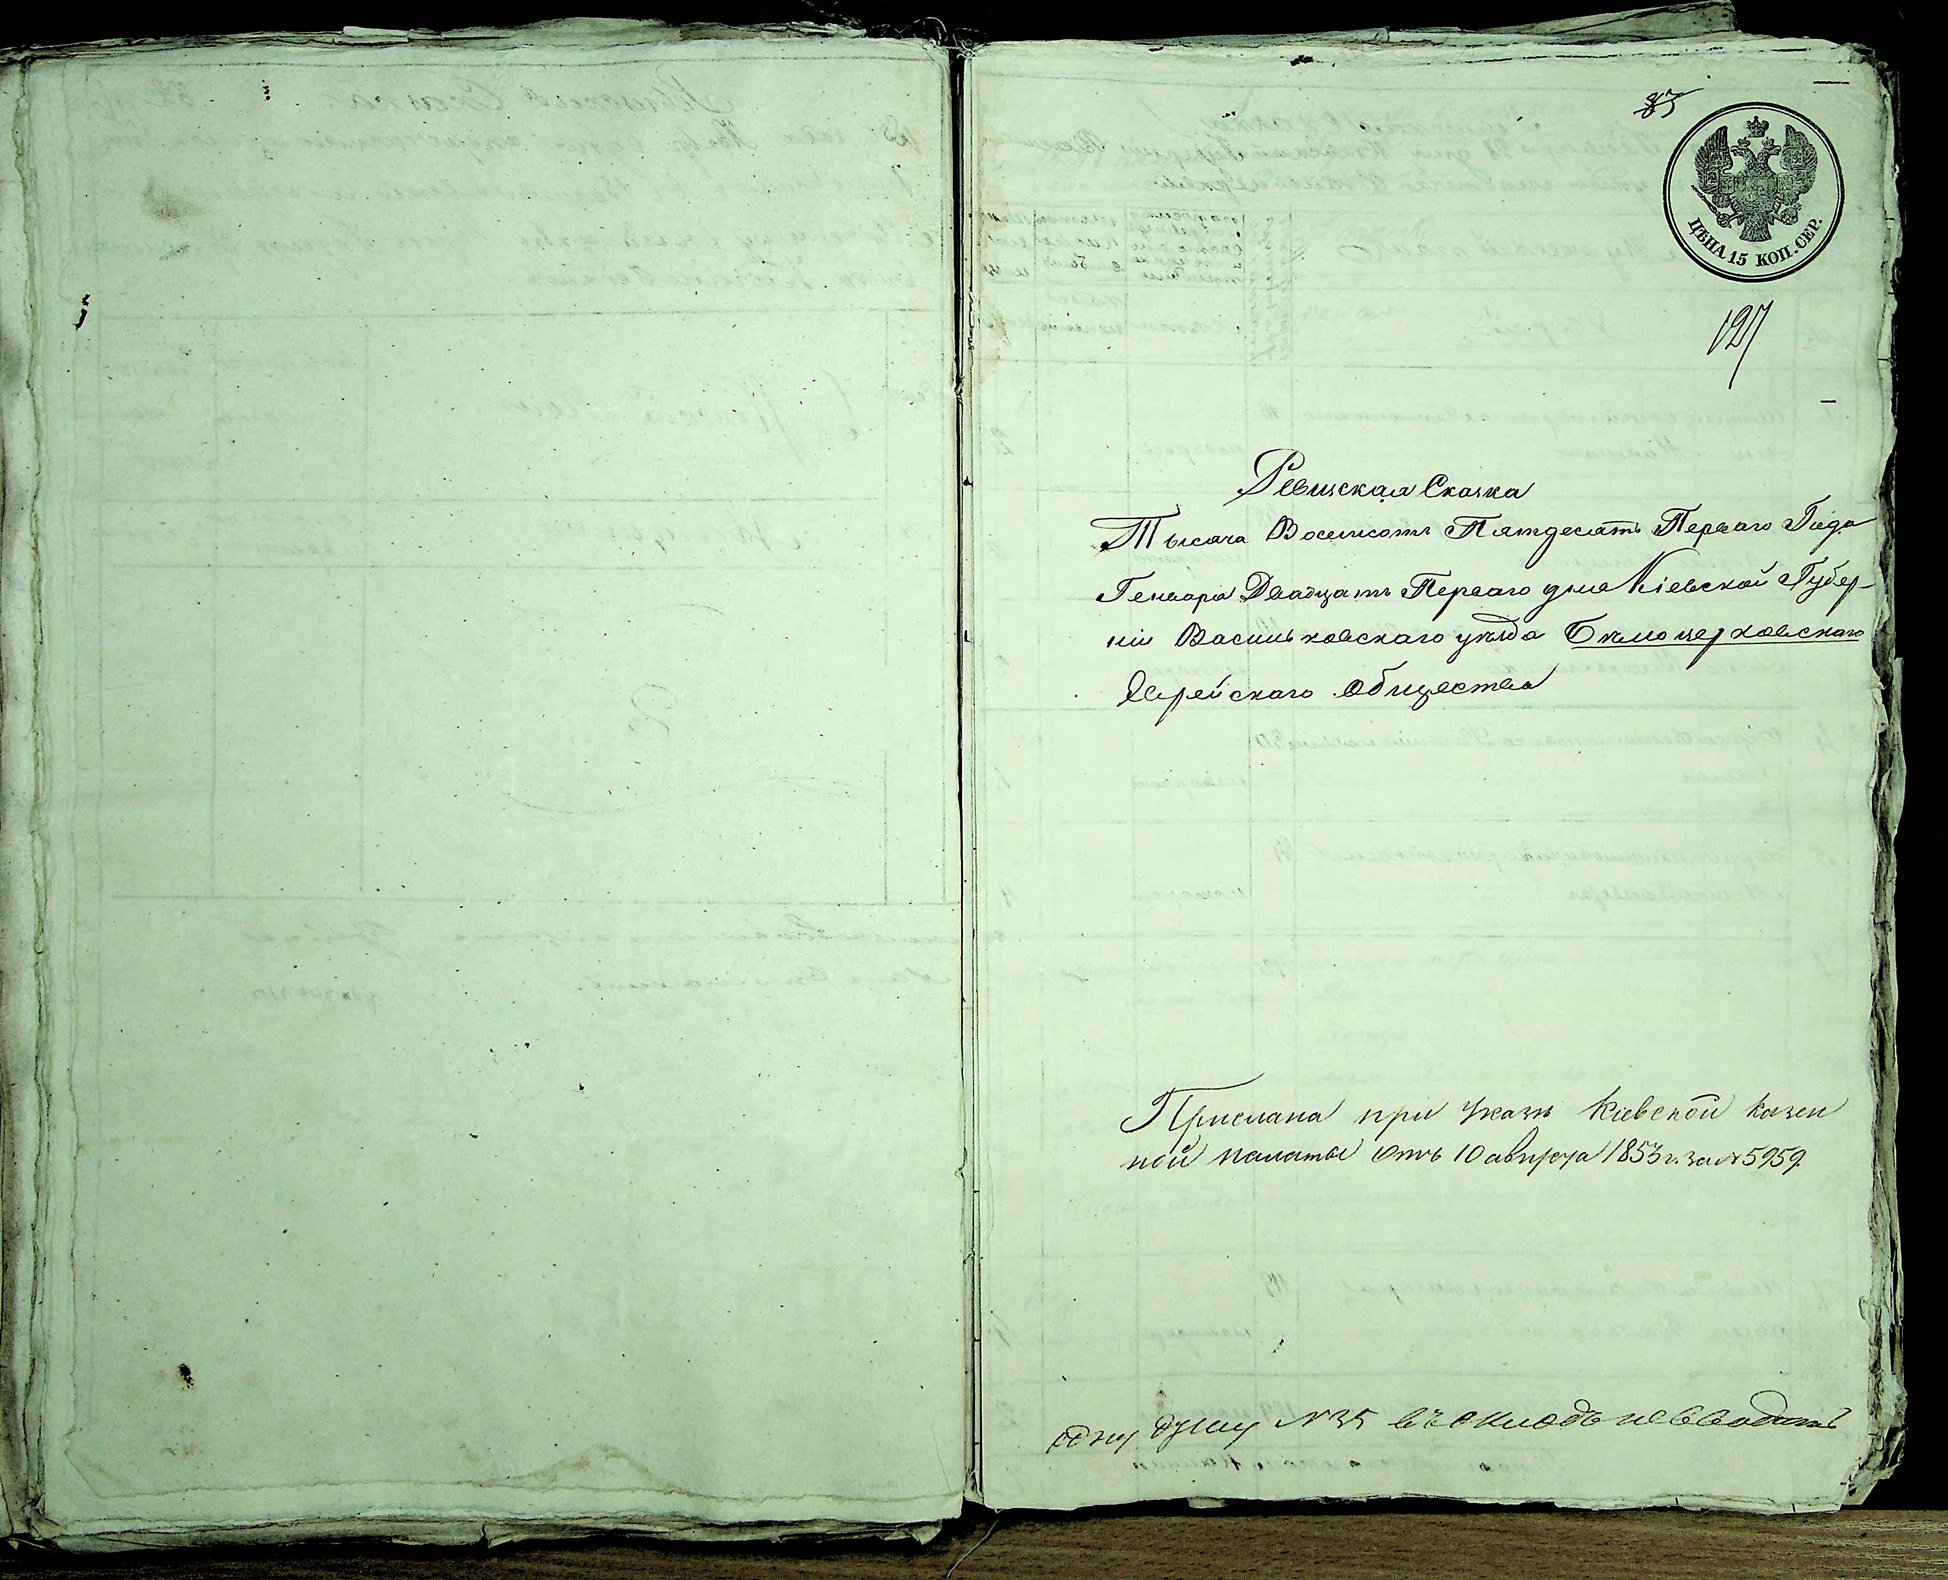 83
ЦѢНА 15 КОП. СЕР.
127
Ревизская Сказка
Тысяча Восемсотъ Пятдесятъ Перваго Года
Генваря Двадцать Перваго дня Кіевской Губер-
ніи Васильковскаго уѣзда Бѣлоцерковскаго
Еврейскаго Общества
Прислана при указѣ Кіевской Казен
ной палаты отъ 10 августа 1853 г. за № 5959.
одну душу № 35 въ окладъ не вводить